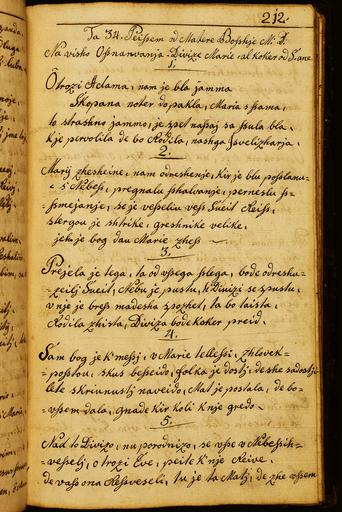 212.
Ta 34. Peissem od Matere Bosshje M: D:
Na visho Osnanvanja Divize Marie, al koker od S. ane
1.
O trozi Adama, nam je bla jamma
Skopana noter do pakla, Maria s ssama,
to strashno jammo, je spet nassaj sa ssula bla,
kje pervolila de bo Rodila, nashga Isvelizharja.
2.
Marij zhesheine, nam odreshenje, kir je blu posslanu-
-e s' Nebess, pregnalu sshalvanje, pernesslu s-
-smejanje, se je vesseliu vess Sueit Reiss,
stergou je shtrike, greshnike velike,
jeke je bog dau Marie zhess
3.
Prejela je tega, ta od vssega slega, bode odreshu-
-zeilj Sueit, Nebu je pustu, k' Divizi se spustu,
v' nje je bress madesha spozhet, ta bo taista,
Rodila zhista, Diviza bode koker preid.
4.
Sam bog je k' messj, v Marie tellessi, zhlovek-
-posstou, skus besseido, folka je dostj, de she sadostj
lete skriunustj naveido, Mat je postala, de bo-
-vssem dala, gnade kir koli k' nje gredo
5.
Nad to Divizo, nu porodnizo, se vsse v Nebessih-
-vesselj, o trozi Eve, peite k' nje Reive,
de vass ona Resveseli, tu je ta Matj, de zhe vssem